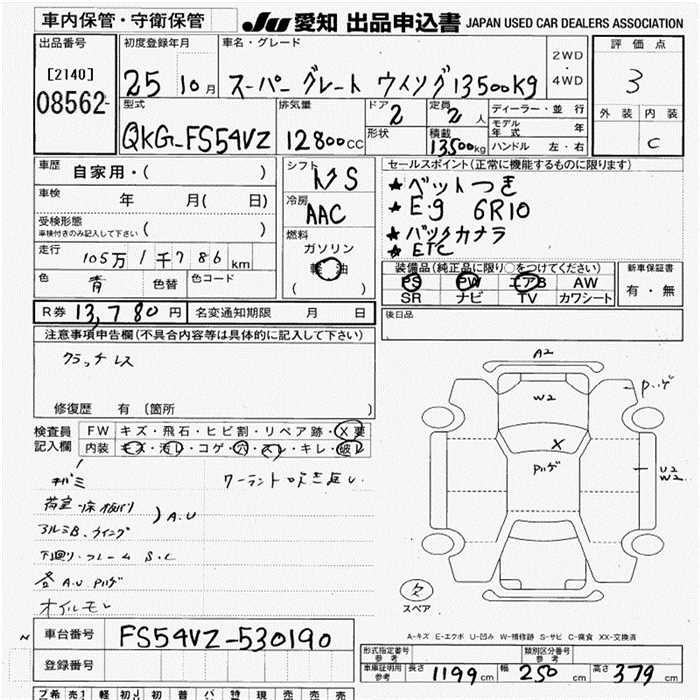 車内保管・守衛保管 JU 愛知 出品申込書 JAPAN USED CAR DEALERS ASSOCIATION
出品番号 初度登録年月 車名・グレード 2WD・4WD 評価点
[2140] 08562 25 10月 スーパーグレート ウィング 13500kg 3
型式 排気量 ドア 2 定員 2人 ディーラー・並行 外装 内装
QKG-FS54VZ 12800cc 形状 積載 13500kg モデル年式 年 C
ハンドル 左・右
車歴 自家用・( )
車検 年 月( 日)
受検形態 車検付きのみ記入して下さい ( )
走行 105万1千786km
色 青 色替 色コード
シフト S
冷房 AAC
燃料 ガソリン 軽油 ( )
セールスポイント(正常に機能するものに限ります)
★ベットつき
★E.g 6R10
★バックカメラ
★ETC
装備品(純正品に限り○をつけてください) 新車保証書
PS PW エアB AW 有・無
SR ナビ TV カワシート
後日品
R券 13,780円 名変通知期限 月 日
注意事項申告欄(不具合内容等は具体的に記入して下さい)
クラッチレス
修復歴 有 (箇所 )
検査員記入欄 FW キズ・飛石・ヒビ割・リペア跡・X要
内装 キズ・汚レ・コゲ・穴・スレ・キレ・破レ
キバミ クーラント吹き返し
荷室・床板バリ
アルミB、ウイング
A.U
下廻り・フレーム S.C
各A.U Pハゲ
オイルモレ
A2
W2
Pハゲ
X
Pハゲ
U2
W2
スペア
A-キズ E-エクボ U-凹み W-補修跡 S-サビ C-腐食 XX-交換済
車台番号 FS54VZ-530190
登録番号
形式指定番号 参考 類別区分番号 参考
車車証明用 参考 長さ 1199cm 幅 250cm 高さ 379cm